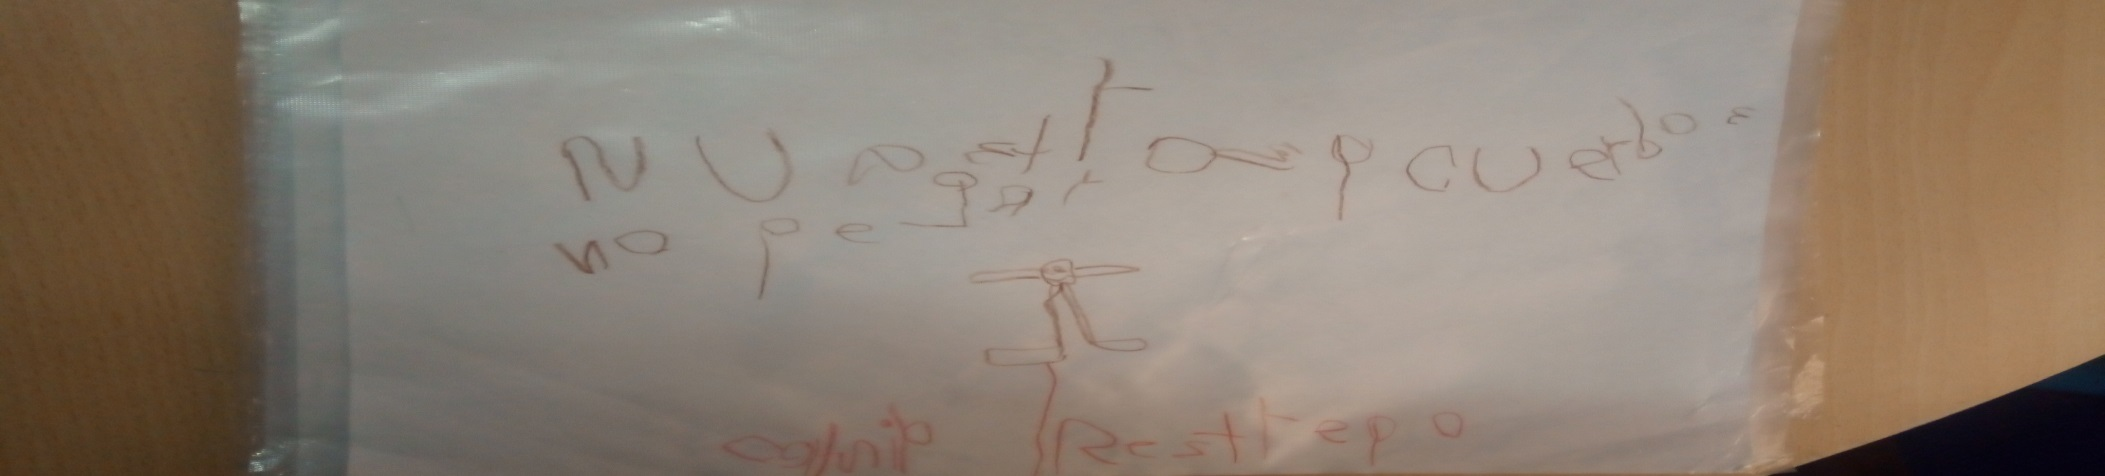 NUestro apcuerbo =
no pegar
Restrepo